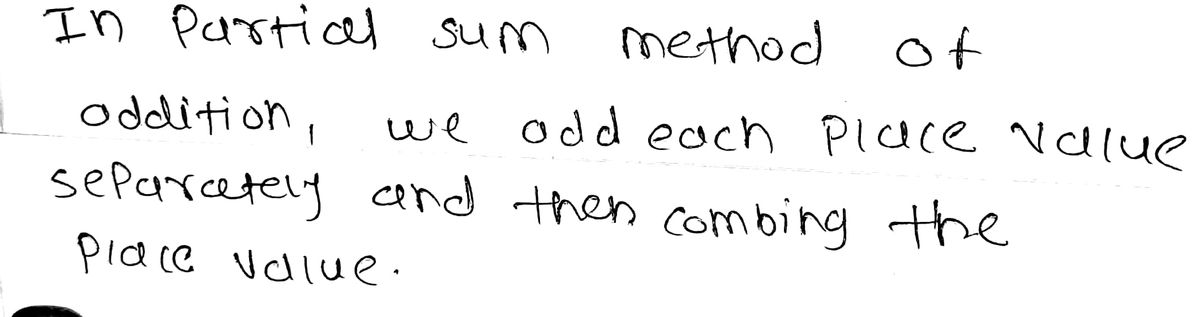 In Partial sum method of
addition, we add each place value
separately and then combing the
place value.